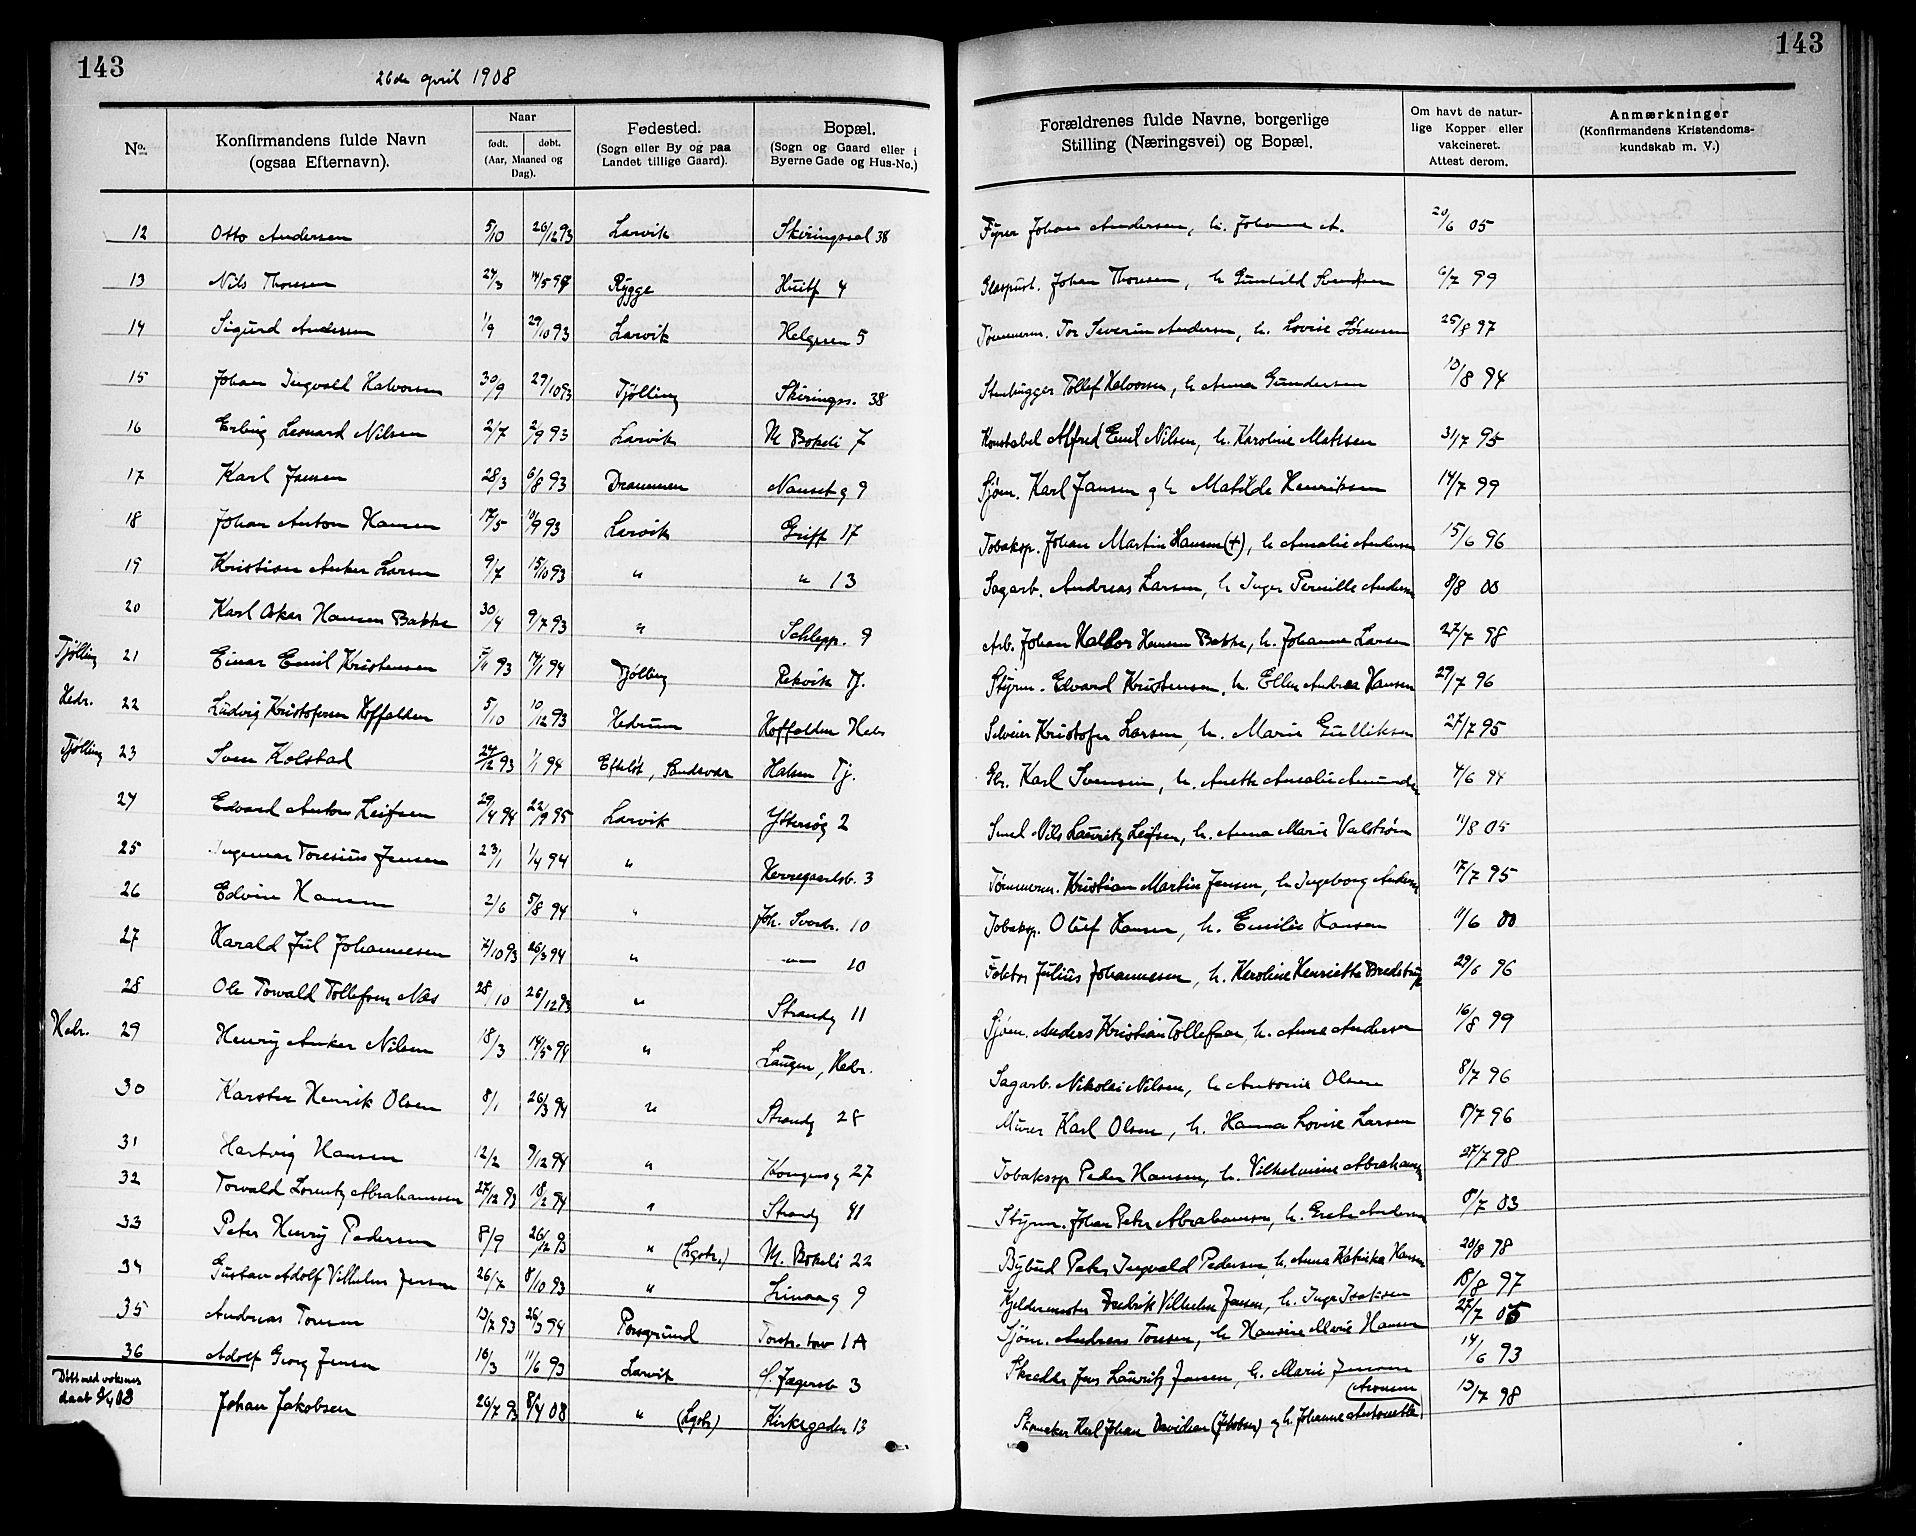 143
143
26de april 1908
No.
Konfirmandens fulde Navn
(ogsaa Efternavn).
Naar
født.
døbt.
(Aar, Maaned og
Dag).
Fødested.
(Sogn eller By og paa
Landet tillige Gaard).
Bopæl.
(Sogn og Gaard eller i
Byerne Gade og Hus-No.)
Forældrenes fulde Navne, borgerlige
Stilling (Næringsvei) og Bopæl.
Om havt de natur-
lige Kopper eller
vakcineret.
Attest derom.
Anmærkninger
(Konfirmandens Kristendoms-
kundskab m. V.)
12 Otto Andersen 5/10 26/12 93 Larvik Skiringssal 38 Fyrer Johan Andersen, h. Johanne A. 20/6 05
13 Nils Thoresen 24/3 14/5 94 Rygge Huitf 4 Glaspust. Johan Thoresen, h Gunhild 6/7 99
14 Sigurd Andersen 1/9 29/10 93 Larvik Helgesen 5 Tømmerm. Tor Severin Andersen, h. Lovise Sørensen 25/8 97
15 Johan Ingvald Halvorsen 30/9 29/10 93 Tjølling Skiringss. 38 Stenhugger Tollef Halvorsen, h Anna Gundersen 10/8 94
16 Erling Leonard Nilsen 2/7 2/9 93 Larvik M Bokeli 7 Konstabel Alfred Emil Nilsen, h. Karoline Matssen 31/7 95
17 Karl Jansen 28/3 6/8 93 Drammen Nanset g 9 Sjøm. Karl Jansen g h Matilde Henriksen 14/7 99
18 Johan Anton Hansen 17/5 10/9 93 Larvik Griff 17 Tobaksp. Johan Martin Hansen (+), h Amalie Andersen 15/6 96
19 Kristian Anker Larsen 9/7 15/10 93 " " 13 Sagarb. Andreas Larsen, h Inger Pernille Andersn 8/8 00
20 Karl Oskar Hansen Bakke 30/4 9/7 93 " Schlepp. 9 Arb. Johan Haldor Hansen Bakke, h. Johanne Larsen 27/7 98
Tjølling 21 Einar Emil Kristensen 5/11 93 14/1 94 Tjølling Rekvik Tj. Styrm. Edvard Kristensen, h. Ellen Andrea Hansen 29/7 96
Hedr. 22 Ludvig Kristofersen Hoffalden 5/10 10/12 93 Hedrum Hoffalden Hedr Selveier Kristofer Larsen, h. Marie Gulliksen 27/7 95
Tjølling 23 Sven Kolstad 24/12 93 1/1 94 Efteløt, Sandsvær Halsen Tj. Gbr. Karl Svensen, h. Anette Amalie Amundsn 4/6 94
24 Edvard Anton Leifsen 29/4 94 22/9 95 Larvik Yttersøg 2 Smed Nils Lauritz Leifsen, h. Anna Marie Valstrøm 11/8 05
25 Ingemar Toresius Jensen 23/1 1/4 94 " Herregaardsb. 3 Tømmerm. Kristian Martin Jensen, h Ingeborg Andersn 17/7 95
26 Edvin Hansen 2/6 5/8 94 " Joh. Svends. 10 Tobaksp. Oluf Hansen, h. Emilie Hansen 11/6 00
27 Harald Jul Johannesen 7/10 93 26/3 94 " — 20 Faktor Julius Johannesen, h. Karoline Henriette Bredstrup 29/6 96
28 Ole Torvald Tollefsen Næs 28/10 26/12 93 " Strandg 11 Sjøm. Anders Kristian Tollefsen h. Anne Andersen 16/8 99
Hedr. 29 Henry Anker Nilsen 18/3 14/5 94 " Laugen, Hedr. Sagarb. Nikolai Nilsen, h Antonie Olsen 8/7 96
30 Karsten Henrik Olsen 8/1 26/3 94 " Strandg 28 Murer Karl Olsen, h. Hanna Lovise Larsen 8/7 96
31 Hartvig Hansen 12/2 9/12 94 " Kongensg 27 Tobaksp Peder Hansen, h. Vilhelmine Abrahamsn 27/7 98
32 Torvald Lorentz Abrahamsen 27/12 93 18/2 94 " Strandg 41 Styrm. Johan Peter Abrahamsen, h. Grete Andersen 8/7 03
33 Peter Henry Pedersen 8/9 26/12 93 " (Lgstr.) M. Bokeli 22 Bybud Peter Ingvald Pedersen, h. Anna Katinka Hansen 20/8 98
34 Gustav Adolf Vilhelm Jensen 26/7 8/10 93 " Linaag 9 Kjeldermester Fredrik Vilhelm Jensen, h. Inga Isaksen 18/8 97
35 Andreas Toresen 13/7 93 26/3 94 Porsgrund Torstr. tov 1A Sjøm. Andreas Toresen, h Hansine Marie Hansen 27/7 05
36 Adolf Georg Jensen 16/3 11/6 93 Larvik S. Jagersb 3 Skrædder Jens Lauritz Jensen, h. Marie Jensen 14/6 93
Døbt med voksnes
daab 8/4 08 Johan Jakobsen 26/7 93 8/4 08 " (Lgstr) Kirkegaden 13 Skomaker Karl Johan Davidsen (Jakobsen) g h. Johanne Antonette (Aronsen 13/7 98